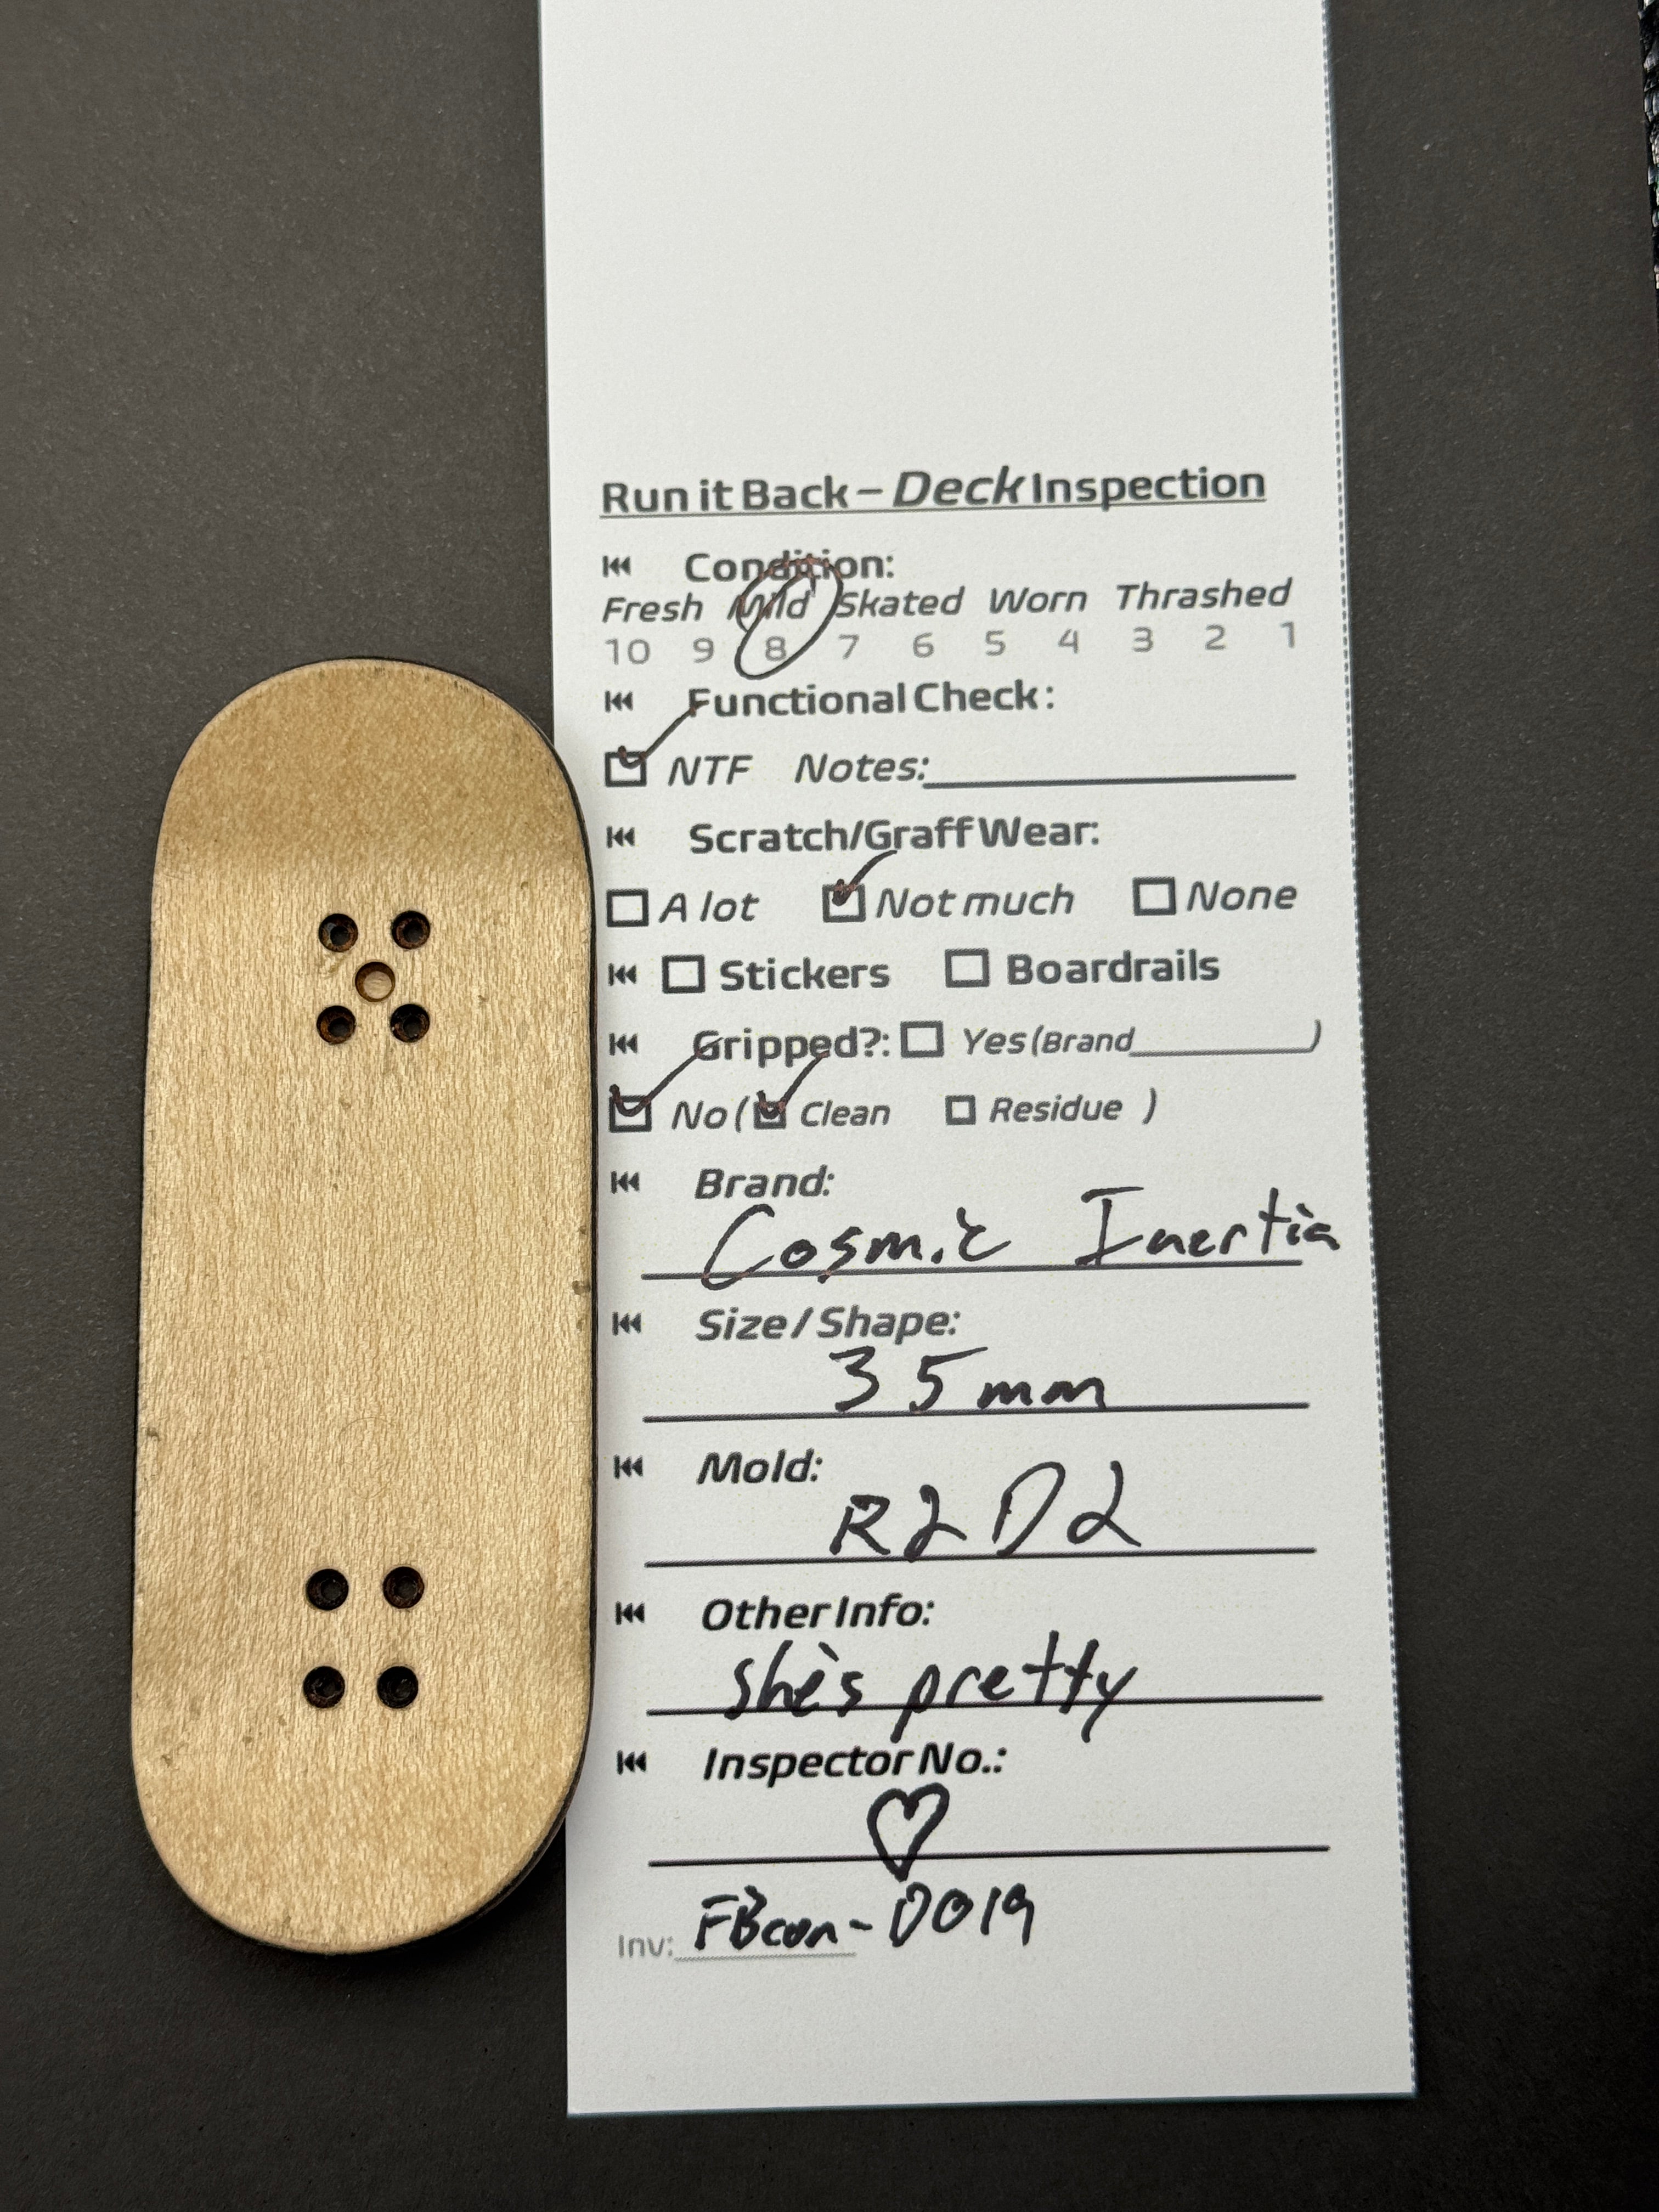 Run it Back – Deck Inspection
Condition:
Fresh Mild Skated Worn Thrashed
10 9 8 7 6 5 4 3 2 1
Functional Check:
NTF Notes:
Scratch/Graff Wear:
A lot Not much None
Stickers Boardrails
Gripped?: Yes (Brand )
No ( Clean Residue )
Brand:
Cosmic Inertia
Size/Shape:
35mm
Mold:
R2D2
Other Info:
she's pretty
Inspector No.:
♡
Inv: FBcon-D019